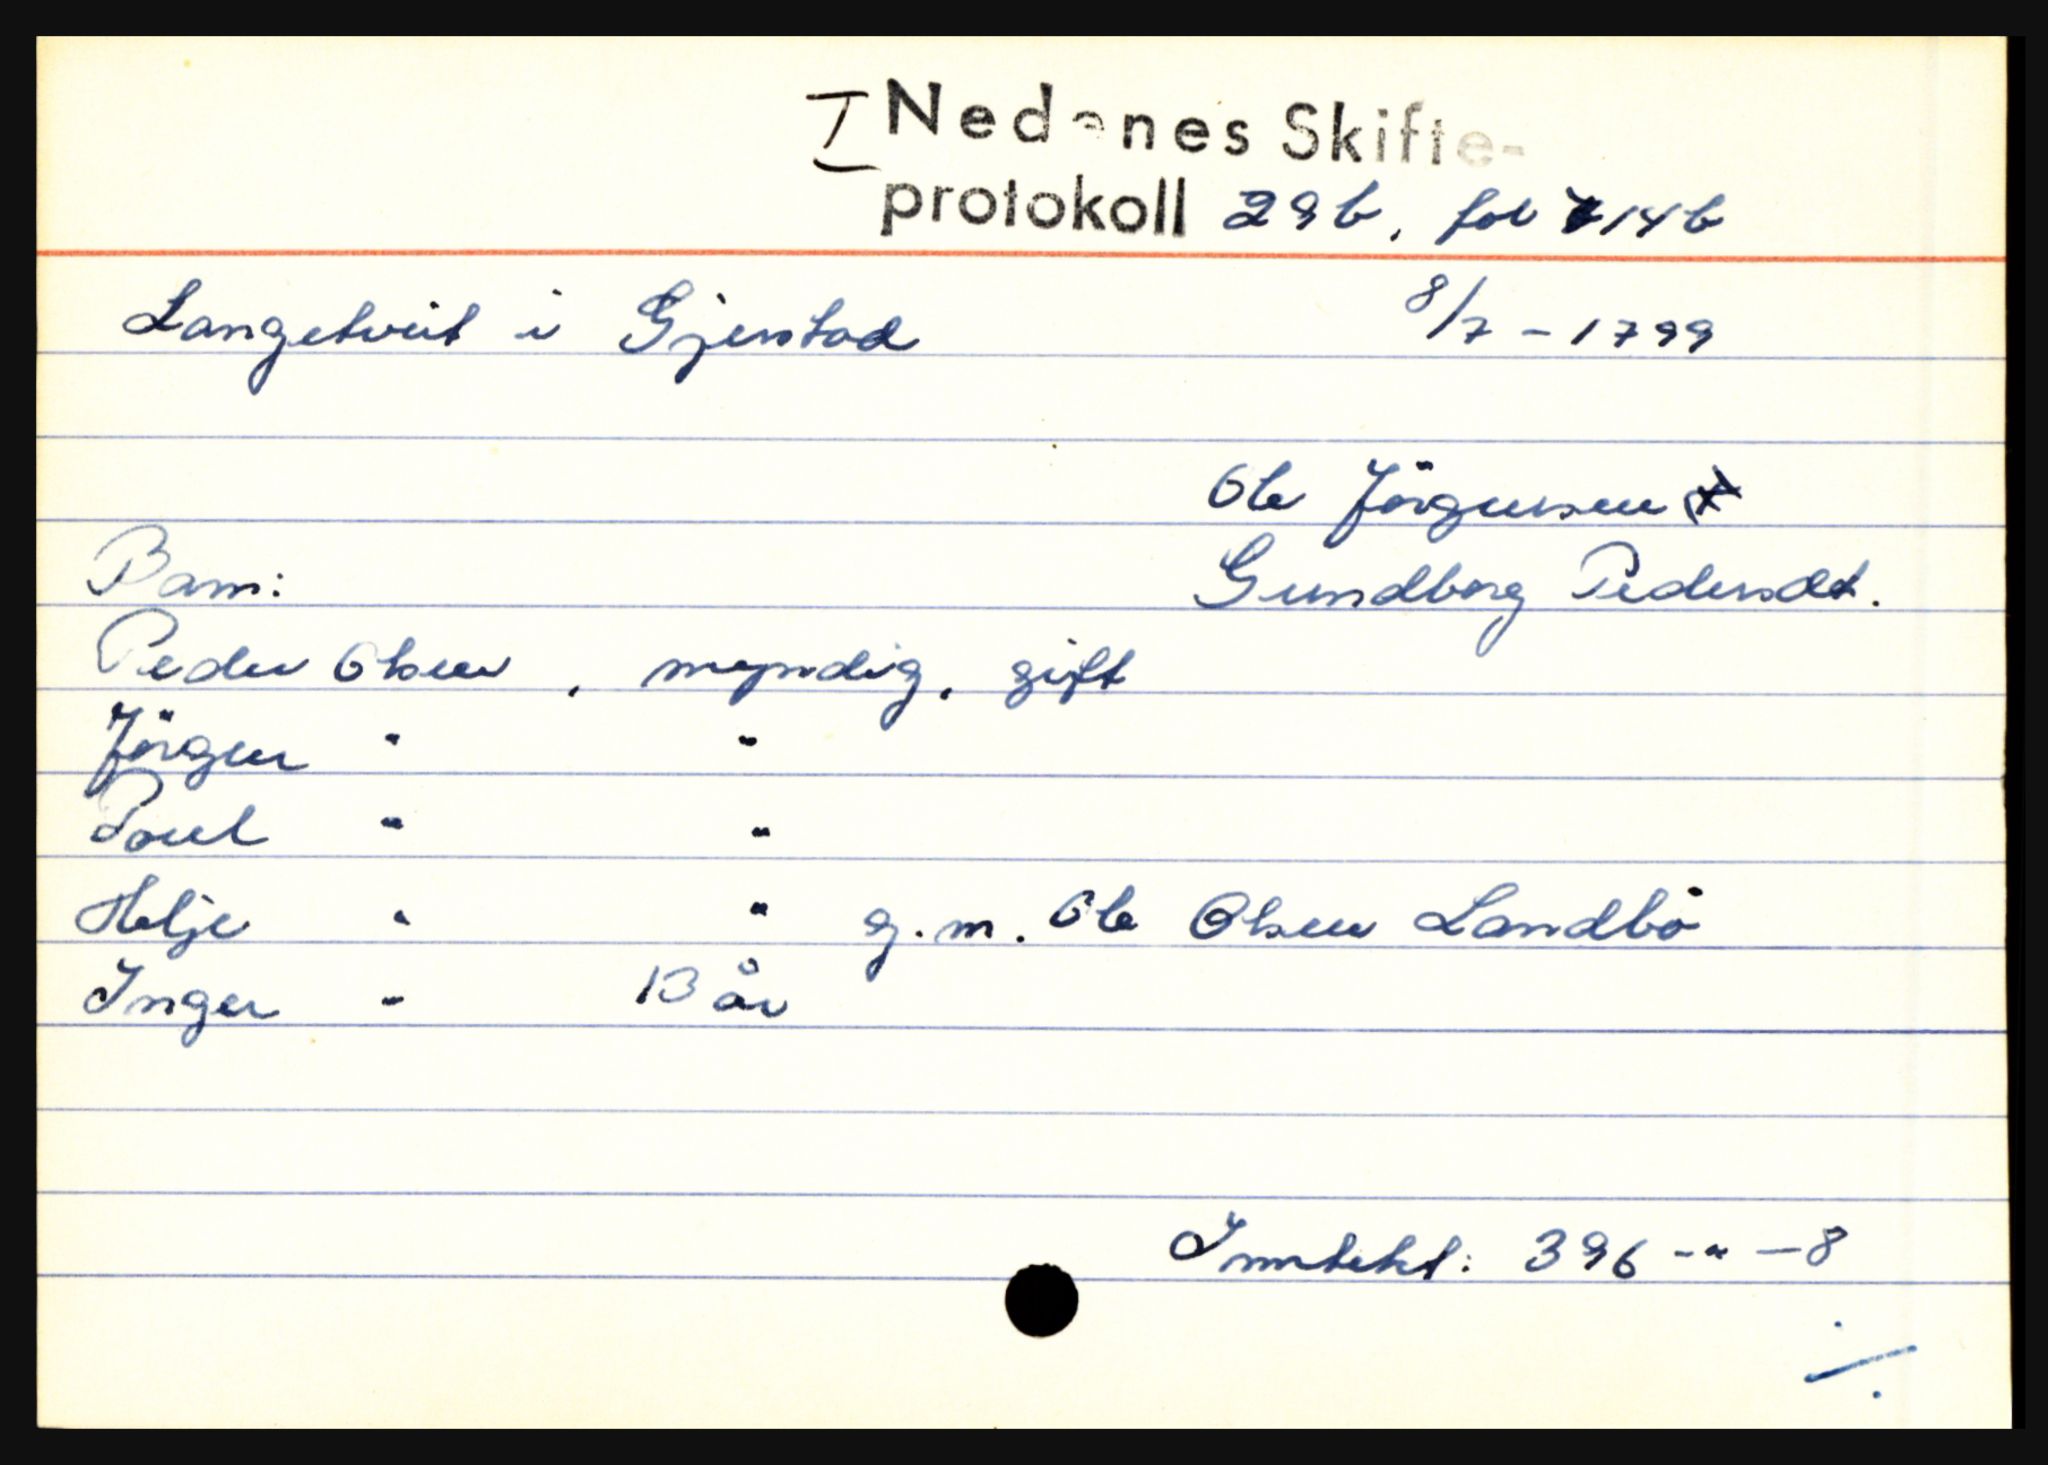 I Nedenes Skifte-
protokoll 29b, fol 714b
Langetveit i Gjerstad 8/7 - 1799
Ole Jörgensen
Barn: Gundborg Pedersdt.
Peder Olsen, myndig, gift
Jörgen " "
Poul " "
Helje " " g.m. Ole Olsen Landbö
Inger " 13 år
Inntekt: 396 - " - 8